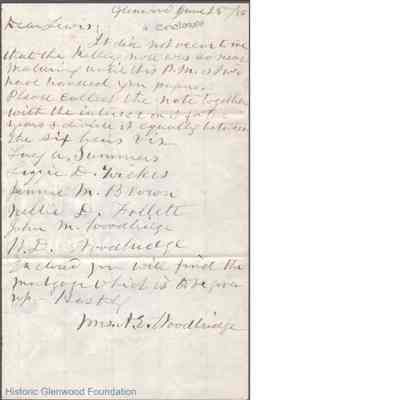 Glenwood June 25/80
Dear Lewis,
It did not occur to me
that the Kelley note was so near
maturing until this P.M. or I would
have handed you papers.
Please collect the note together
with the interest on it for the
years & divide it equally between
the six heirs Viz
Lucy A. Summers
Lizzie D. Wickes
Jennie M. Brown
Nellie D. Follett
John M. Woodbridge
N.D. Woodbridge
Enclosed you will find the
mortgage which is to be given
up.
Mrs. N.D. Woodbridge
Historic Glenwood Foundation